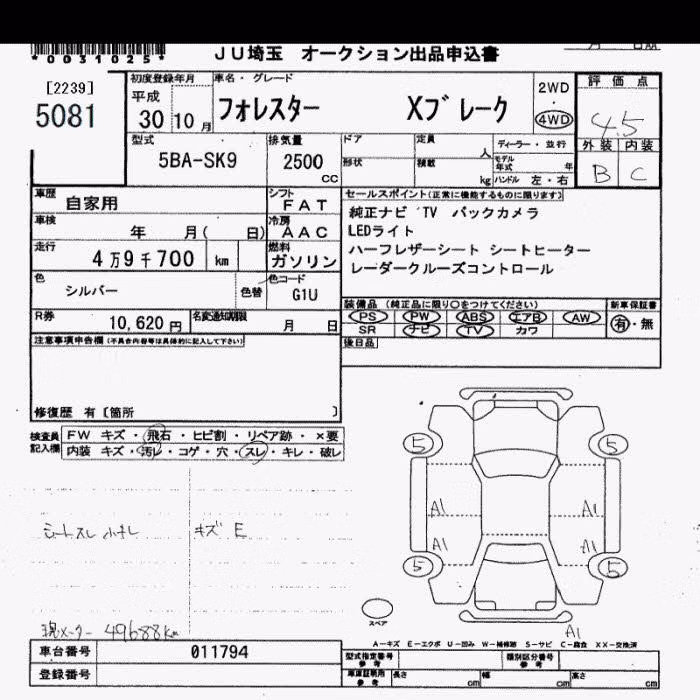 *0031025*
JU埼玉 オークション出品申込書
[2239]
5081
初度登録年月
平成
30 10 月
車名・グレード
フォレスター Xブレーク
2WD
4WD
評価点
4.5
外装 内装
B C
型式
5BA-SK9
排気量
2500
cc
ドア
形状
定員
人
積載
kg
ディーラー・並行
モデル年式 年
ハンドル 左・右
車歴
自家用
シフト
FAT
車検
年 月( 日)
冷房
AAC
走行
4万9千700 km
燃料
ガソリン
色
シルバー
色替
色コード
G1U
R券
10,620 円
名変通知期限
月 日
セールスポイント(正常に機能するものに限ります)
純正ナビ TV バックカメラ
LEDライト
ハーフレザーシート シートヒーター
レーダークルーズコントロール
装備品 (純正品に限り○をつけてください)
PS PW ABS エアB AW
SR ナビ TV カワ
新車保証書
有・無
後日品
注意事項申告欄(不具合内容等は具体的に記入して下さい)
修復歴 有[箇所 ]
検査員
記入欄
FW キズ・飛石・ヒビ割・リペア跡・×要
内装 キズ・汚レ・コゲ・穴・スレ・キレ・破レ
シートスレ 小キレ
キズ E
5 5
A1 A1
A1 A1
5 5
スペア
A1
現メーター 49688km
A-キズ E-エクボ U-凹み W-補修跡 S-サビ C-腐食 XX-交換済
車台番号
011794
登録番号
型式指定番号
参考
類別区分番号
参考
車庫証明用
参考
長さ cm 幅 cm 高さ cm